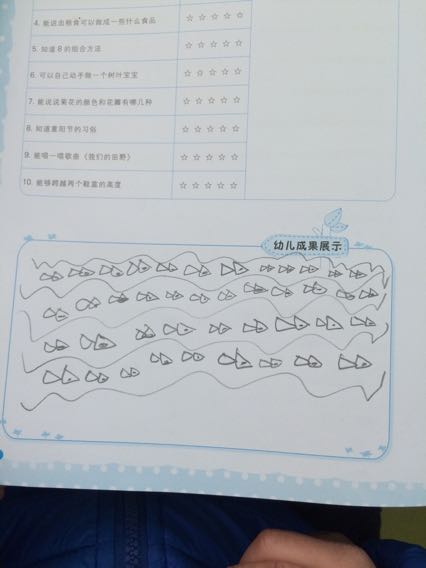 4. 能说出粮食可以做成一些什么食品 ☆ ☆ ☆ ☆ ☆
5. 知道8的组合方法 ☆ ☆ ☆ ☆ ☆
6. 可以自己动手做一个树叶宝宝 ☆ ☆ ☆ ☆ ☆
7. 能说说菊花的颜色和花瓣有哪几种 ☆ ☆ ☆ ☆ ☆
8. 知道重阳节的习俗 ☆ ☆ ☆ ☆ ☆
9. 能唱一唱歌曲《我们的田野》 ☆ ☆ ☆ ☆ ☆
10. 能够跨越两个鞋盒的高度 ☆ ☆ ☆ ☆ ☆
幼儿成果展示